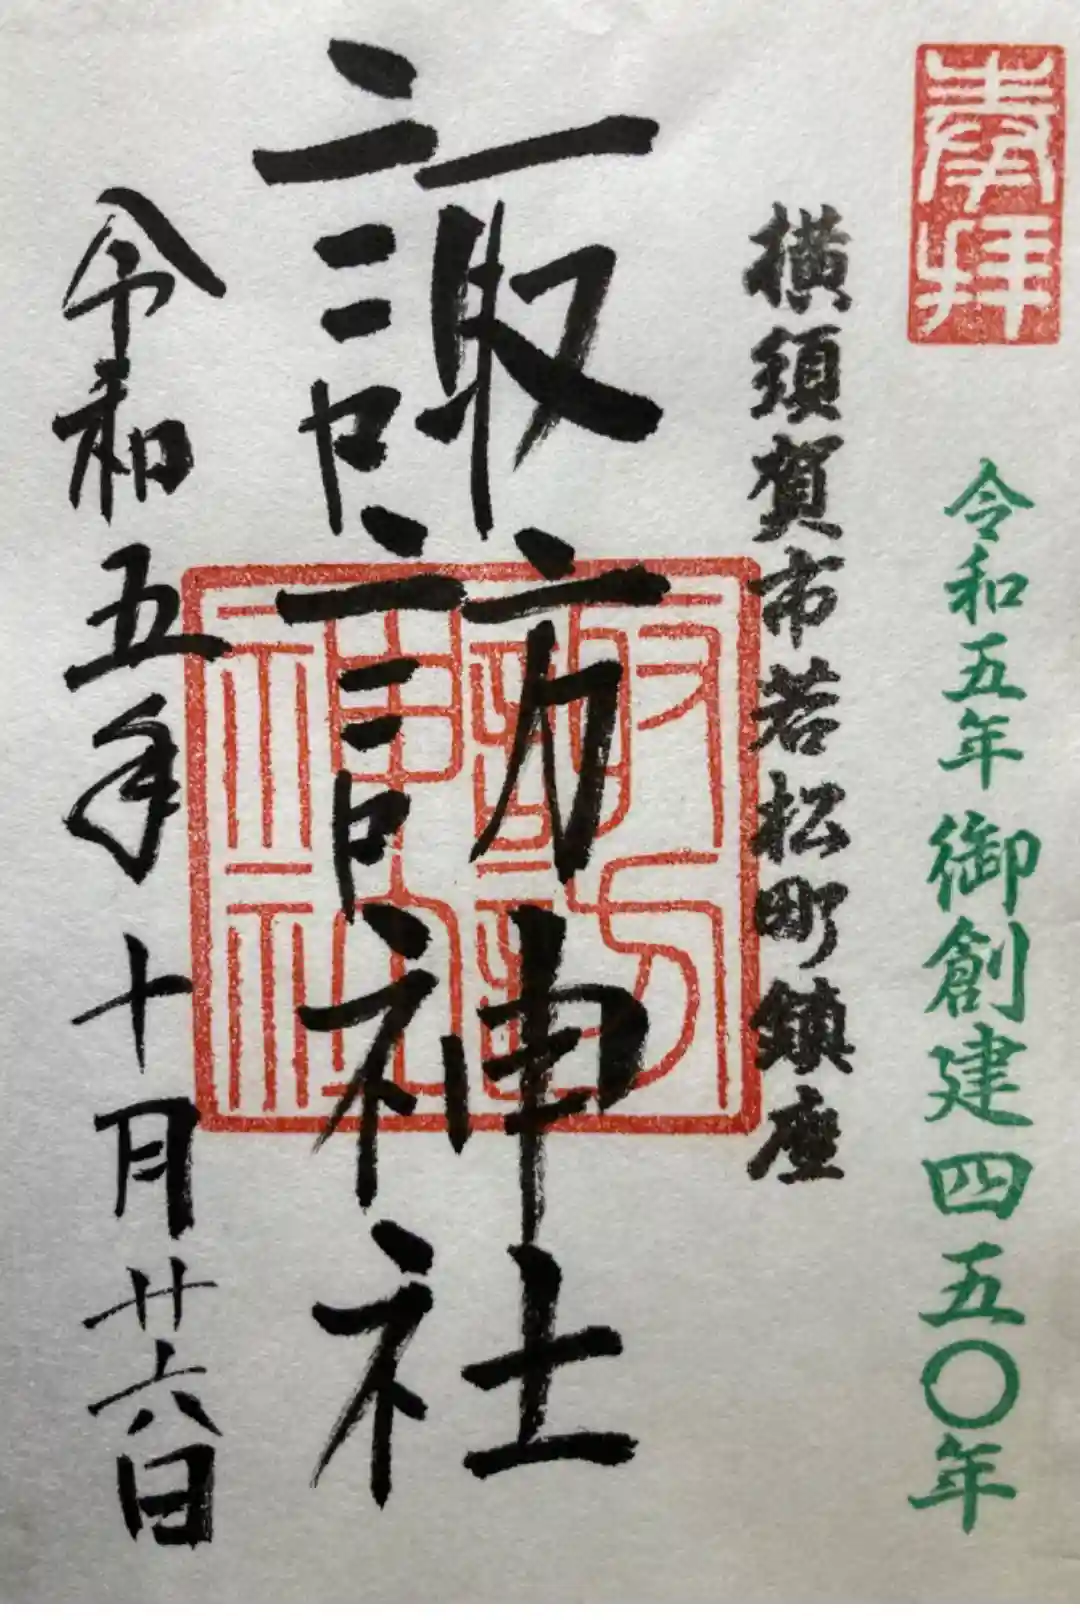 奉拝
令和五年御創建四五〇年
横須賀市若松町鎮座
諏訪神社
諏訪神社
令和五年十月廿六日